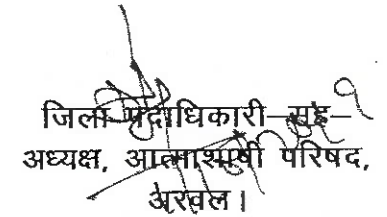 जिला पदाधिकारी-सह-
अध्यक्ष, आत्मा शाषी परिषद,
अरवल।